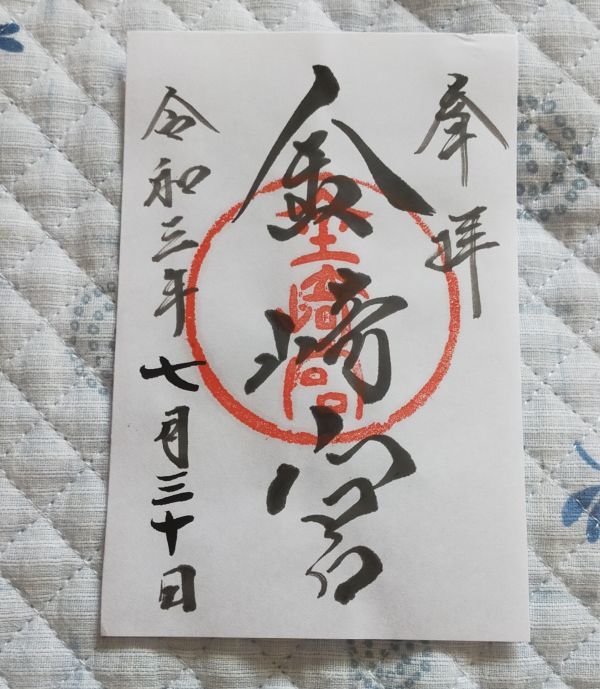 奉拝
金崎宮
令和三年七月三十日